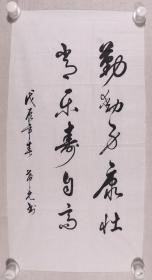 勤劳身康壮
常乐寿自高
戊辰年春 光书